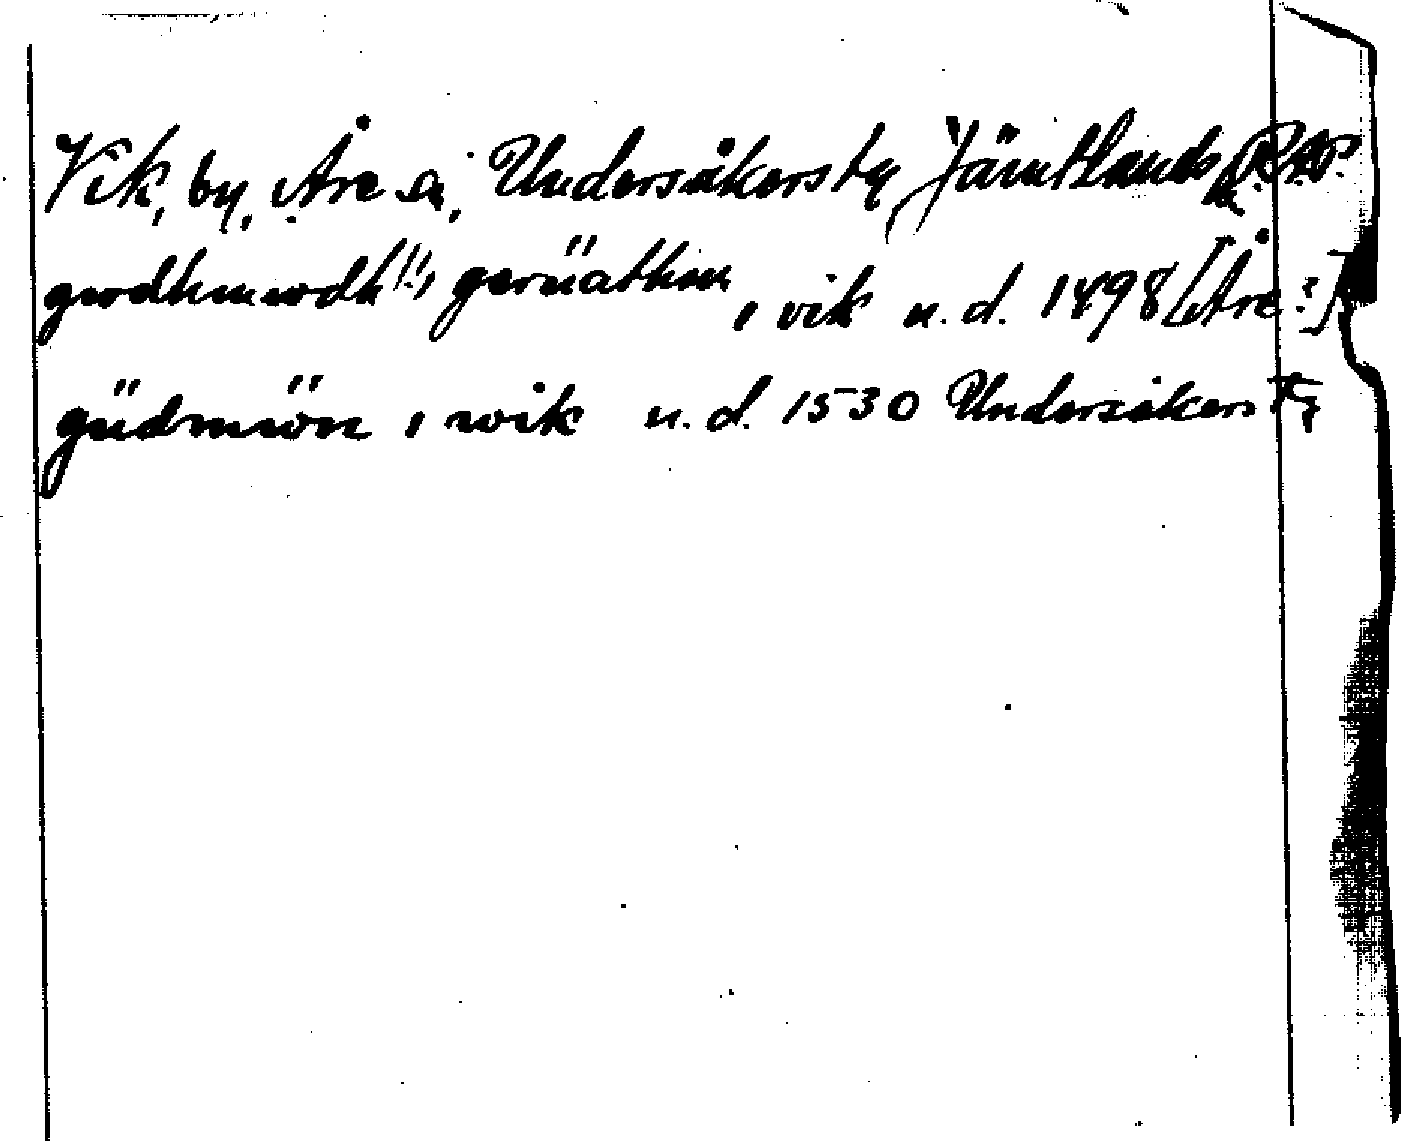 Vik, by, Åre sn, Undersåkers tg Jämtlands
gwdhmwdh(!), gerüathon, vik u. d. 1498 [Åre?]
güdmwön, i wik u. d. 1530 Undersåkers tg